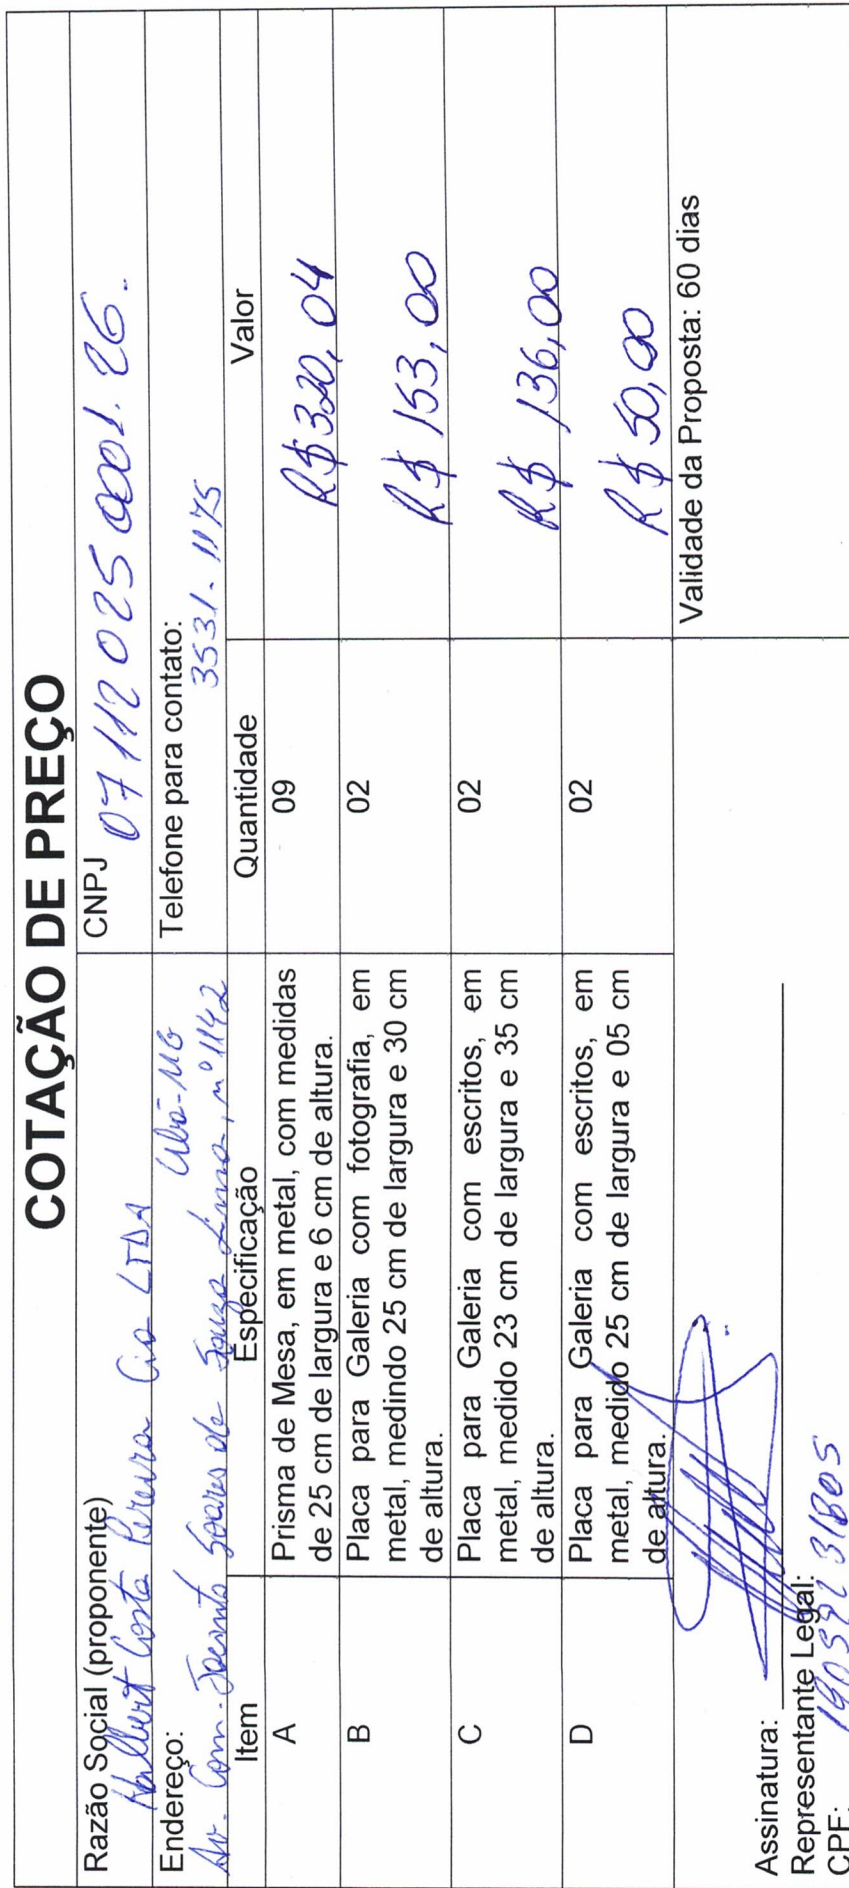 COTAÇÃO DE PREÇO
Razão Social (proponente)
Costa Pereira Cia LTDA
CNPJ
07 112 025 0001.26.
Endereço:
Ubá-MG
Av. Com. Jacinto Soares de Souza Lima, nº 1142
Telefone para contato:
3531-1175
Item Especificação Quantidade Valor
A Prisma de Mesa, em metal, com medidas 09 R$ 320,04
de 25 cm de largura e 6 cm de altura.
B Placa para Galeria com fotografia, em 02 R$ 153,00
metal, medindo 25 cm de largura e 30 cm
de altura.
C Placa para Galeria com escritos, em 02 R$ 136,00
metal, medido 23 cm de largura e 35 cm
de altura.
D Placa para Galeria com escritos, em 02 R$ 50,00
metal, medido 25 cm de largura e 05 cm
de altura.
Validade da Proposta: 60 dias
Assinatura:
Representante Legal:
CPF: